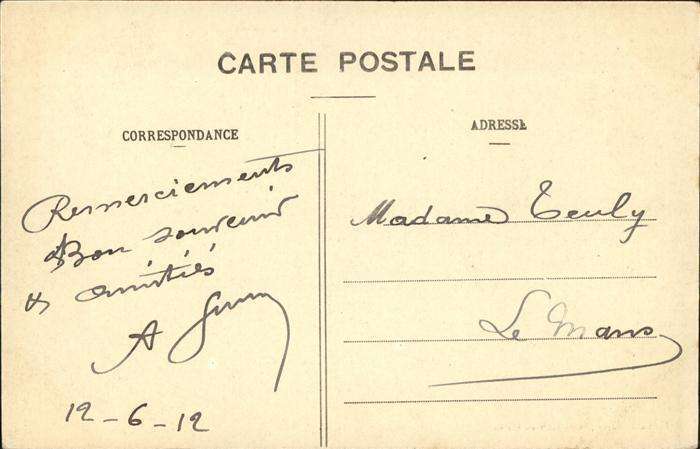 CARTE POSTALE
CORRESPONDANCE
Remerciements
& Bon souvenir
& amitiés
A
12-6-12
ADRESSE
Madame Teuly
Le Mans